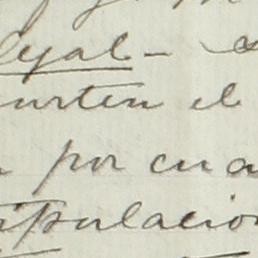 legal -
surten el
por cua
stipulacion